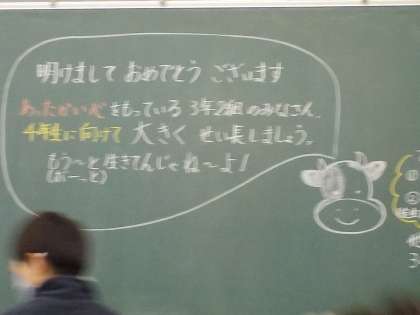 明けまして おめでとう ございます
あったかい心をもっている 3年2組のみなさん。
4年生に向けて 大きく せい長しましょう。
もう〜と生きてんじゃね〜よ!
(ボーっと)
①
②